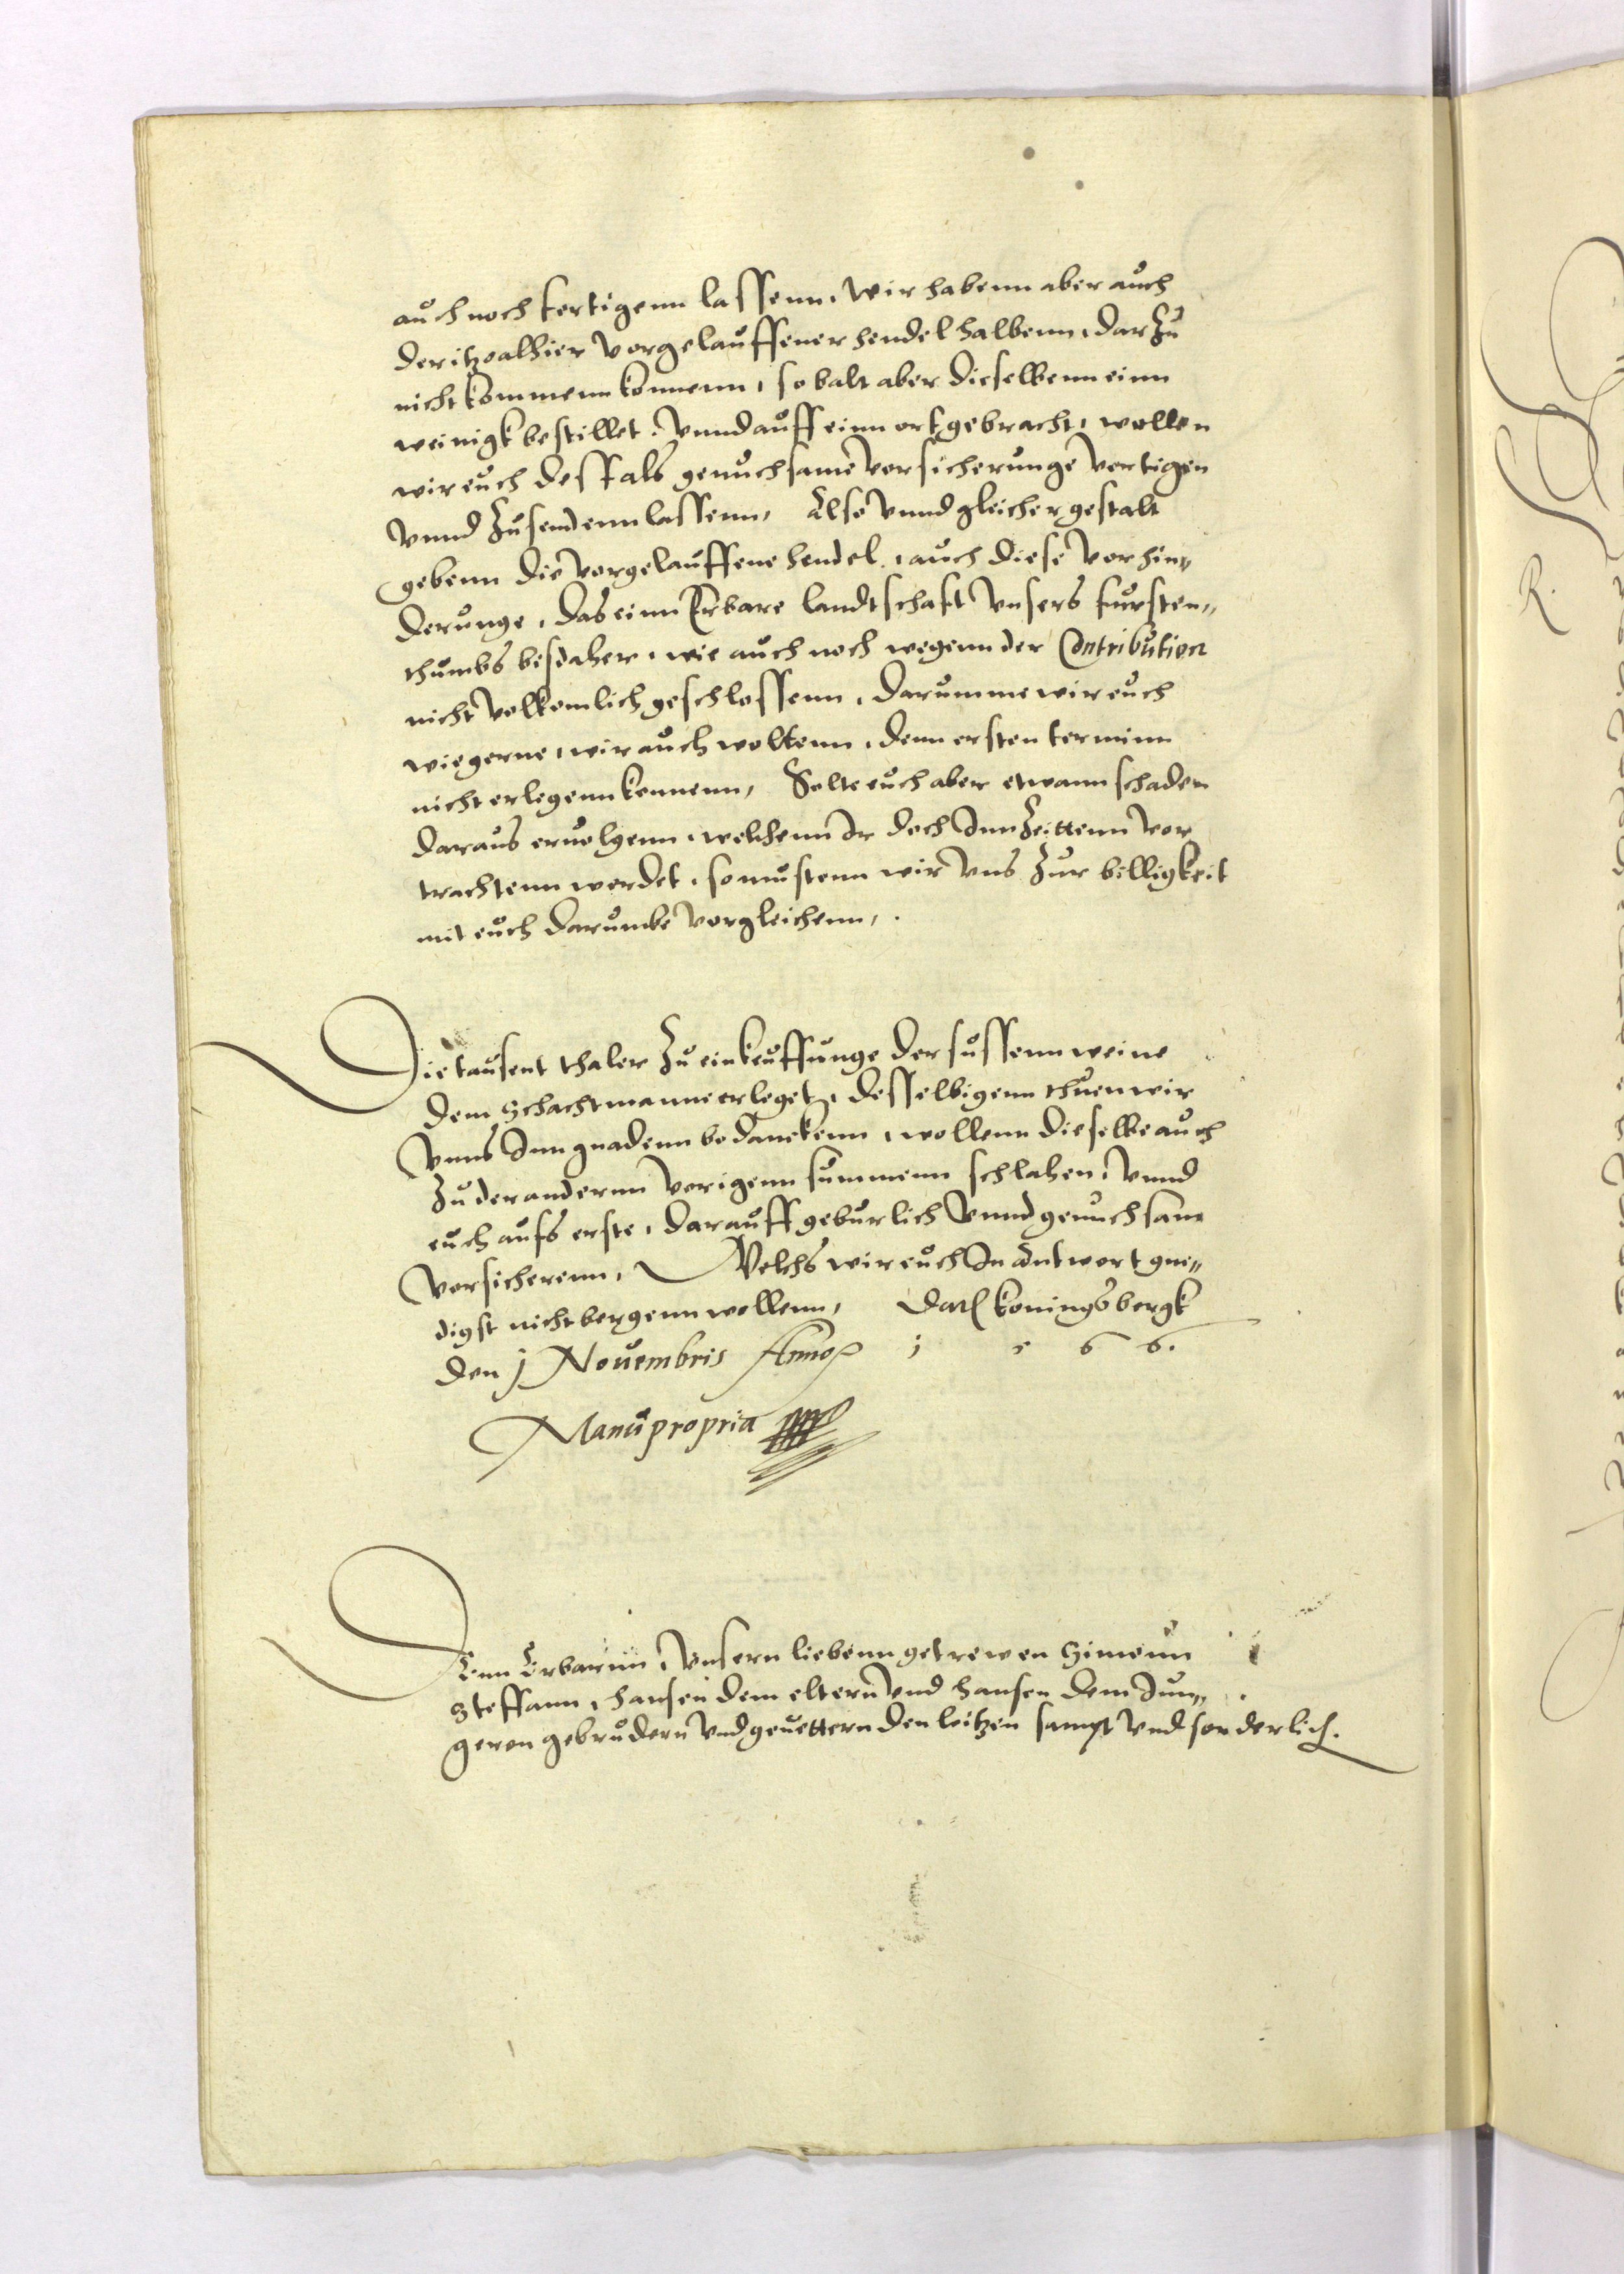 auch noch fertigenn lassenn, wir habenn aber auch
der itzo alhier vorgelauffener hendel halbenn, darzu
nicht kommenn konnenn, so balt aber dieselbenn einn
weinigk bestillet, vnnd auff einn ort gebracht, wollen
wir euch desfals genuchsame vorsicherunge vertigen
vnnd zusendenn lassenn, Also vnnd gleicher gestalt
gebenn die vorgelauffene hendel, auch diese vorhin„
derunge, das einn Erbare landtschaft vnsers fursten„
thumbs bisdaher, wie auch noch wegenn der Contribution
nicht volkomlich geschlossenn, darumme wir euch
wie gerne, wir auch woltenn, denn ersten terminn
nicht erlegenn konnenn, Solte euch aber etwann schaden
daraus eruolgenn, welchenn Ir doch Inn Zeittenn vor
trachtenn werdet, so mustenn wir vns zur billigkeit
mit euch darumbe vorgleichenn,.
Die tausent thaler zu einkeuffunge der sussenn weine
dem Schachtmanne erleget, desselbigenn thuen wir
vnns Inn gnadenn bedanckenn, wollenn dieselbe auch
zu der andernn vorigenn summenn schlahen, vnnd
euch aufs erste, darauff geburlich vnnd genuchsam
vorsicherenn, Welchs wir euch In antwort gne„
digst nicht bergenn wollenn, Dat koningsbergk
den j Nouembris Anno 1 5 6 6.
Manu propria
Denn Erbarnn, vnsern liebenn getrewen Simonn
Steffann, hansen dem eltern vnd hansen dem Jun„
geren gebrudern vnd geuettern den loitzen sampt vnd sonderlich.
R.